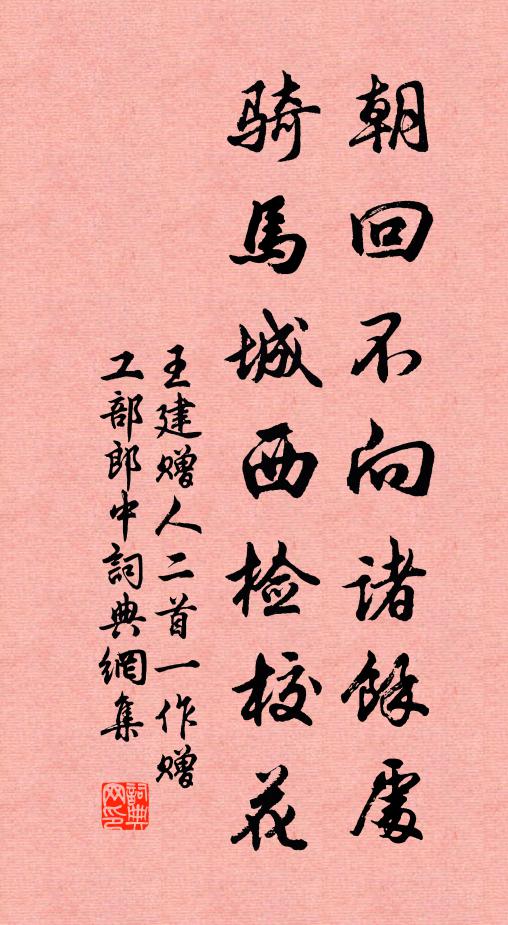 朝回不向諸餘處
骑馬城西检校花
王建赠人二首一作赠
工部郎中詞典網集
詞典网印